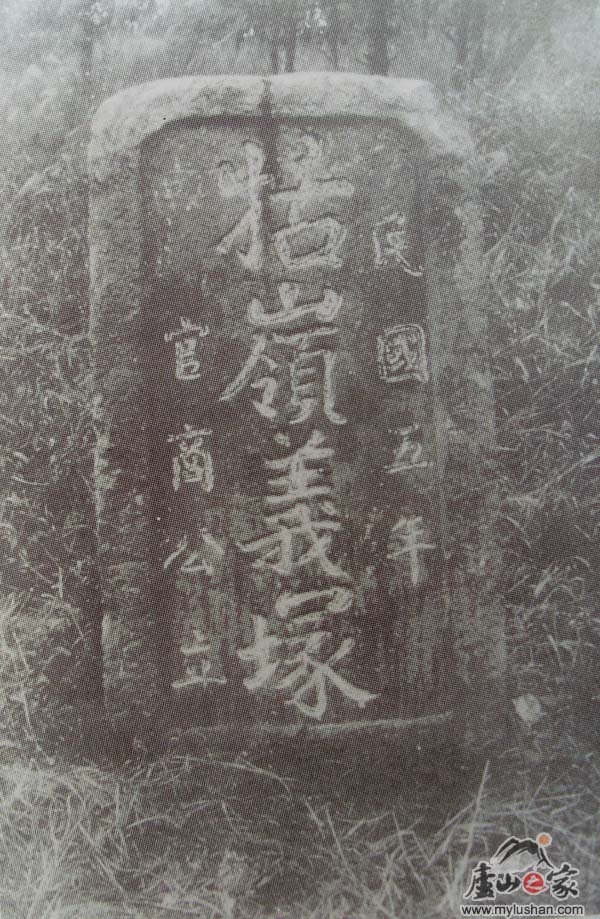 民國五年
牯嶺義塚
官商公立
庐山之家
www.mylushan.com